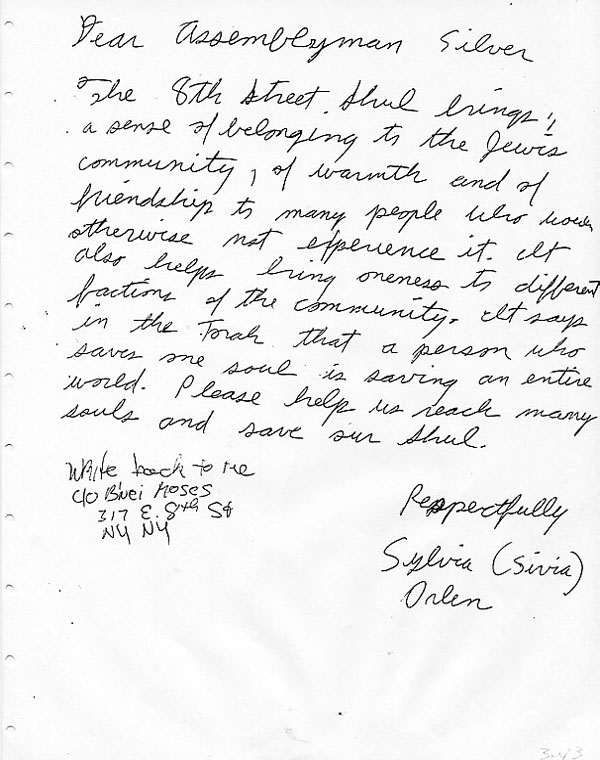 Dear Assemblyman Silver
The 8th Street Shul brings
a sense of belonging to the Jewis
community, of warmth and of
friendship to many people who
otherwise not experience it. It
also helps bring oneness to different
factions of the community. It says
in the Torah that a person who
saves one soul is saving an entire
world. Please help us reach many
souls and save our Shul.
Write back to me
c/o B'nei Moses
317 E. 8th St
NY NY
Respectfully
Sylvia (Sivia)
Orlen